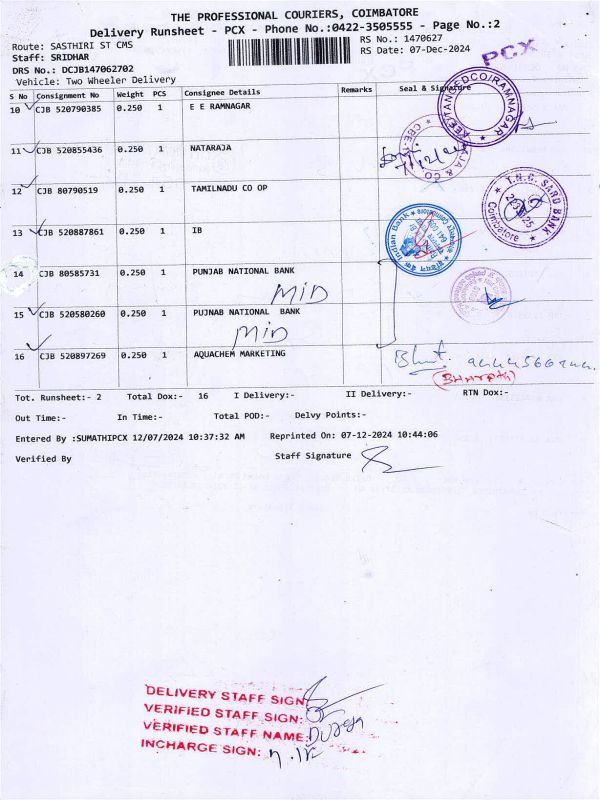 THE PROFESSIONAL COURIERS, COIMBATORE
Delivery Runsheet - PCX - Phone No.:0422-3505555 - Page No.:2
Route: SASTHIRI ST CMS
RS No.: 1470627
Staff: SRIDHAR
RS Date: 07-Dec-2024
DRS No.: DCJB147062702
Vehicle: Two Wheeler Delivery
PCX
S No Consignment No Weight PCS Consignee Details Remarks Seal & Signature
10 CJB 520790385 0.250 1 E E RAMNAGAR
11 CJB 520855436 0.250 1 NATARAJA
12 CJB 80790519 0.250 1 TAMILNADU CO OP
T.N.C. SARD BANK
Coimbatore
13 CJB 520887861 0.250 1 IB
Indian Bank
14 CJB 80585731 0.250 1 PUNJAB NATIONAL BANK
MID
15 CJB 520580260 0.250 1 PUJNAB NATIONAL BANK
MID
16 CJB 520897269 0.250 1 AQUACHEM MARKETING
Tot. Runsheet:- 2 Total Dox:- 16 I Delivery:- II Delivery:- RTN Dox:-
Out Time:- In Time:- Total POD:- Delvy Points:-
Entered By :SUMATHIPCX 12/07/2024 10:37:32 AM Reprinted On: 07-12-2024 10:44:06
Verified By Staff Signature
DELIVERY STAFF SIGN:
VERIFIED STAFF SIGN:
VERIFIED STAFF NAME:
INCHARGE SIGN: